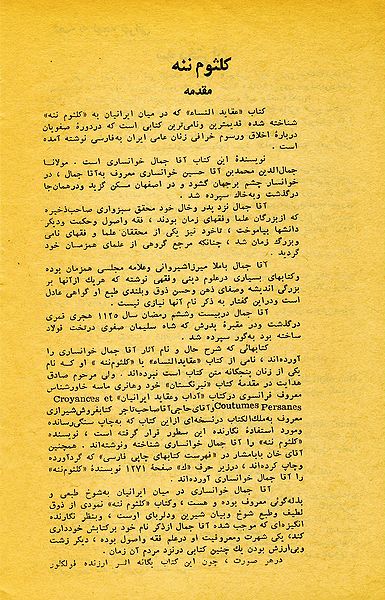 کلثوم ننه
مقدمه
کتاب «عقاید النساء» که در میان ایرانیان به «کلثوم ننه»
شناخته شده قدیمترین ونامی‌ترین کتابی است که دردورهٔ صفویان
دربارهٔ اخلاق ورسوم خرافی زنان عامی ایران به‌فارسی نوشته آمده
است .
نویسندهٔ این کتاب آقا جمال خوانساری است . مولانا
جمال‌الدین محمدبن آقا حسین خوانساری معروف به‌آقا جمال ، در
خوانسار چشم برجهان گشود و در اصفهان مسکن گزید ودرهمان‌جا
درگذشت وبه‌خاك سپرده شد .
آقا جمال نزد پدر وخال خود محقق سبزواری صاحب‌ذخیره
که ازبزرگان علما وفقهای زمان بودند ، فقه واصول وحکمت ودیگر
دانشها بیاموخت ، تاخود نیز یکی از محققان علما و فقهای نامی
وبزرگ زمان شد ، چنانکه مرجع گروهی از علمای همزمسان خود
گردید .
آقا جمال باملا میرزاشیروانی وعلامه مجلسی همزمان بوده
وکتابهای بسیاری درعلوم دینی وفقهی نوشته که هریك ازآنها بر
بزرگی اندیشه وصفای ذهن وحسن ذوق وبلندی طبع او گواهی عادل
است ودراین گفتار به ذکر نام آنها نیازی نیست .
آقا جمال دربیست وششم رمضان سال ۱۱۲۵ هجری قمری
درگذشت ودر مقبرهٔ پدرش که شاه سلیمان صفوی درتخت فولاد
ساخته بود به‌گور سپرده شد .
کتابهائی که شرح حال و نام آثار آقا جمال خوانساری را
آورده‌اند ، نامی از کتاب «عقایدالنساء» یا «کلثوم‌ننه » او کــه نام
یکی از زنان پنجگانه متن کتاب است نبرده‌اند . ولی مرحوم صادق
هدایت در مقدمهٔ کتاب «نیرنگستان» خود وهانری ماسه خاورشناس
معروف فرانسوی درکتاب «آداب وعقاید ایرانیان» Croyances et
Coutumes Persanes وآقای حاجی‌آقاصاحب‌تاجر کتابفروش‌شیرازی
معروف به‌ملك‌الکتاب درنسخه‌ای ازاین کتاب که به‌چاپ سنگی‌رسانده
ومورد استفادهٔ نگارنده این سطور قرار گرفته است ، نویسنده
«کلثوم ننه» را آقا جمال خوانساری شناخته ونوشته‌اند . همچنین
آقای خان بابامشار در «فهرست کتابهای چاپی فارسی» که گردآورده
وچاپ کرده‌اند ، درزیر حرف «ك» صفحهٔ ۱۲۷۱ نویسندهٔ «کلثوم‌ننه»
را آقا جمال خوانساری آورده‌اند.
آقا جمال خوانساری در میان ایرانیان به‌شوخ طبعی و
بذله‌گوئی معروف بوده و هست ، وکتاب «کلثوم ننه» نمودی از ذوق
لطیف وطبع شوخ وبیان شیرین ودلربای اوست . وبنظر نگارنده
انگیزه‌ای که موجب شده آقا جمال ازذکر نام خود برکتابش خودداری
کند، یکی شهرت ومعروفیت او درعلم فقه واصول بوده ، دیگر زشت
وبی‌ارزش بودن یك چنین کتابی درنزد مردم آن زمان .
درهر صورت ، چون این کتاب یگانه اثـر ارزنده فولکلور